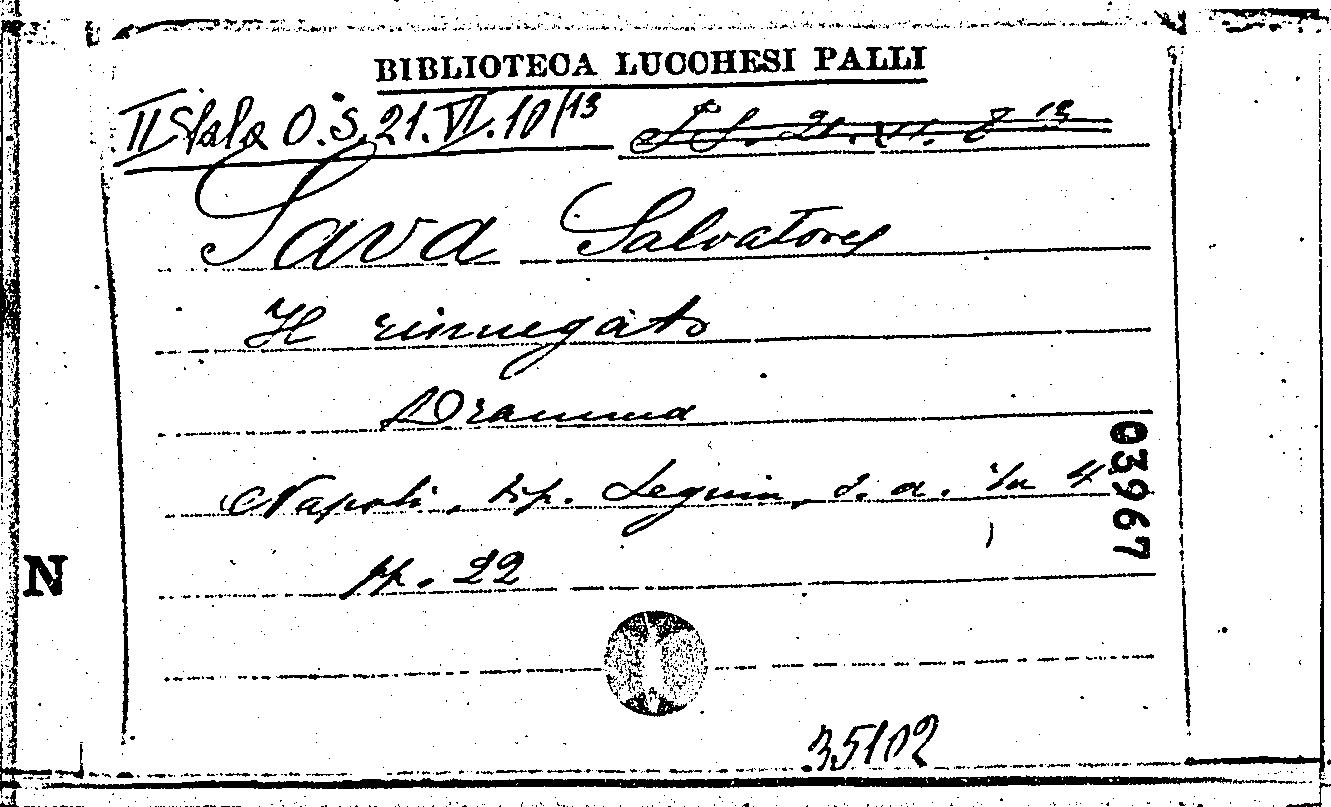 BIBLIOTECA LUCCHESI PALLI
II Sala O.S. 21. VI. 10/13
Sava Salvatore
Il rinnegato
Dramma
Napoli, tip. Seguin, s. a. in 4
pp. 22
03967
N
35102